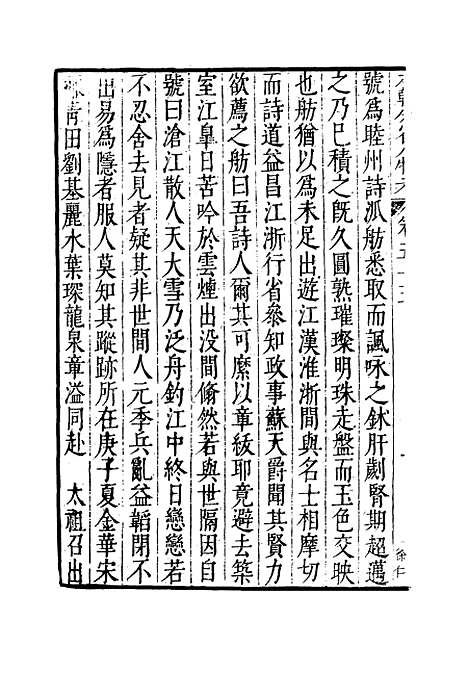 號爲睦州詩派舫悉取而諷咏之鉥肝劌腎期超邁
之乃巳積之旣久圓熟璀璨明珠走盤而玉色交映
也舫猶以爲未足出遊江漢淮浙間與名士相摩切
而詩道益昌江浙行省參知政事蘇天爵聞其賢力
欲薦之舫曰吾詩人爾其可縻以章紱耶竟避去築
室江臯日苦吟於雲煙出没間翛然若與世隔因自
號曰滄江散人天大雪乃泛舟釣江中終日戀戀若
不忍舍去見者疑其非世間人元季兵亂益韜閉不
出易爲隱者服人莫知其蹤跡所在庚子夏金華宋
濂靑田劉基麗水葉琛龍泉章溢同赴　太祖召出